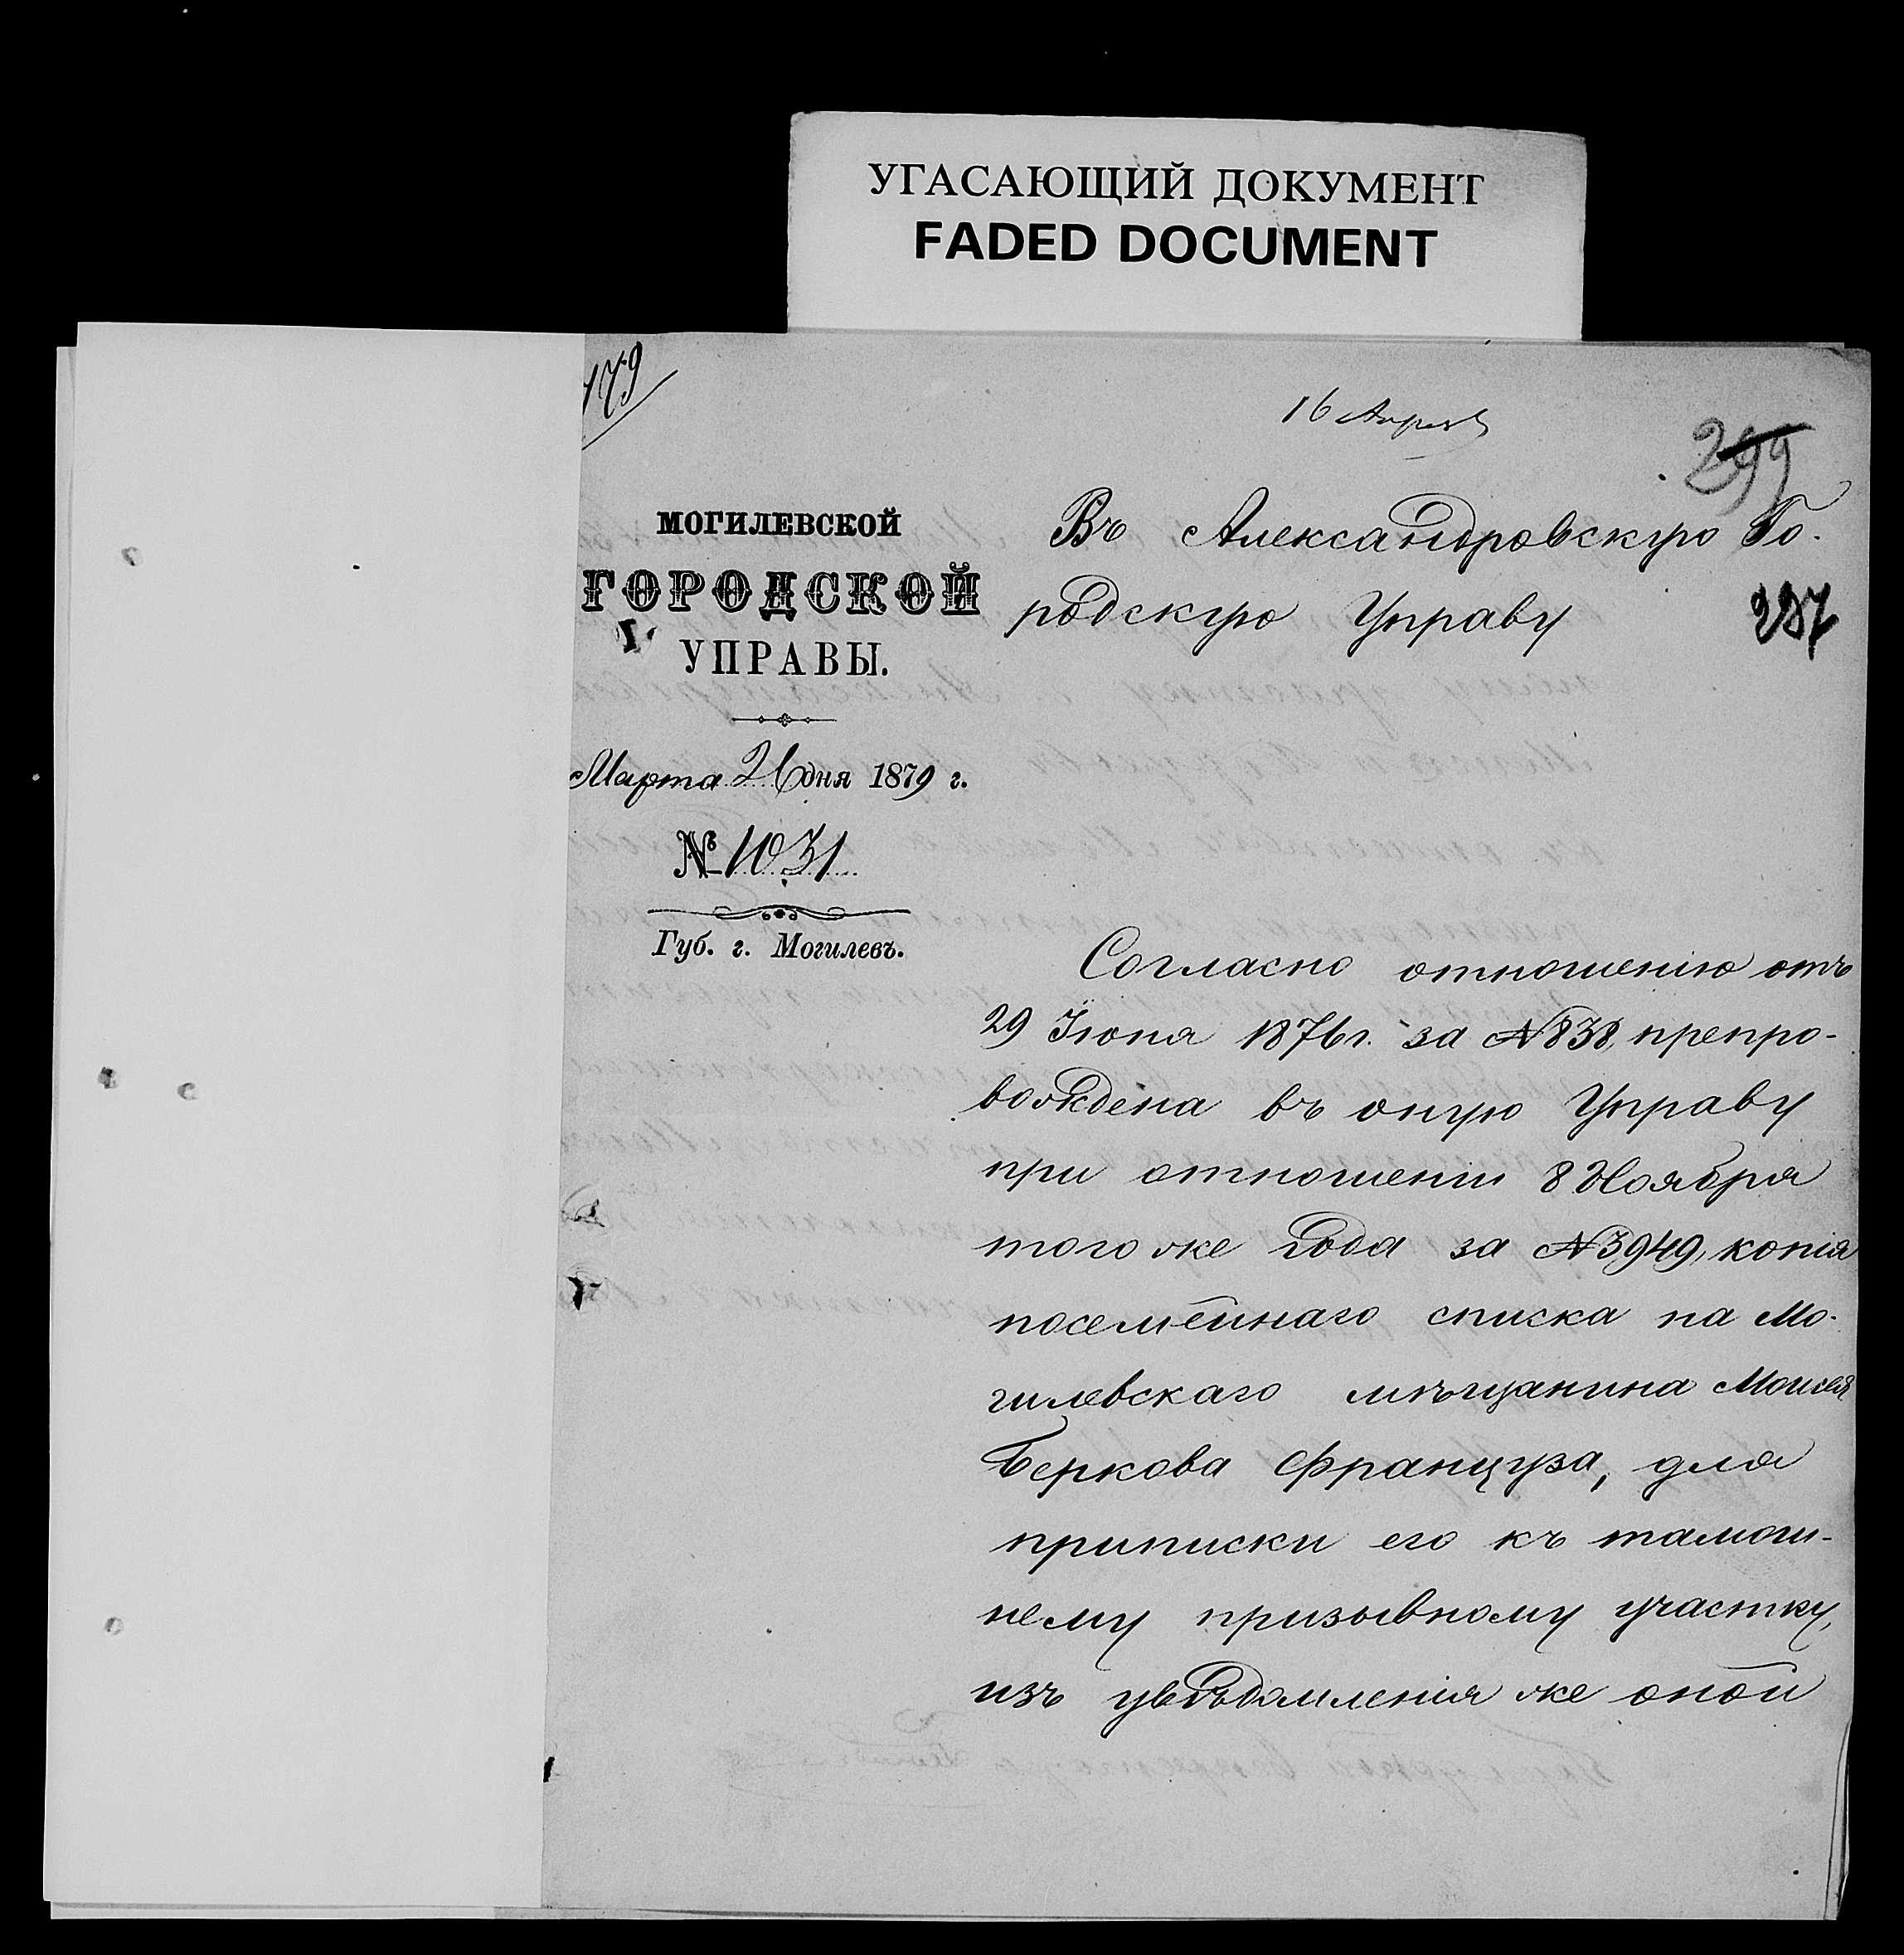 УГАСАЮЩИЙ ДОКУМЕНТ
FADED DOCUMENT
179
16 Апреля
299
МОГИЛЕВСКОЙ
ГОРОДСКОЙ
УПРАВЫ.
Марта 26 дня 1879 г.
№ 1031
Губ. г. Могилевъ.
Въ Александровскую Го-
родскую Управу
287
Согласно отношенію отъ
29 Іюня 1876 г. за №838, препро-
вождена въ оную Управу
при отношеніи 8 Ноября
того же года за №3949, копія
посемейнаго списка на Мо-
гилевскаго мѣщанина Моисея
Беркова Француза, для
приписки его къ тамош-
нему призывному участку,
изъ увѣдомленія же оной